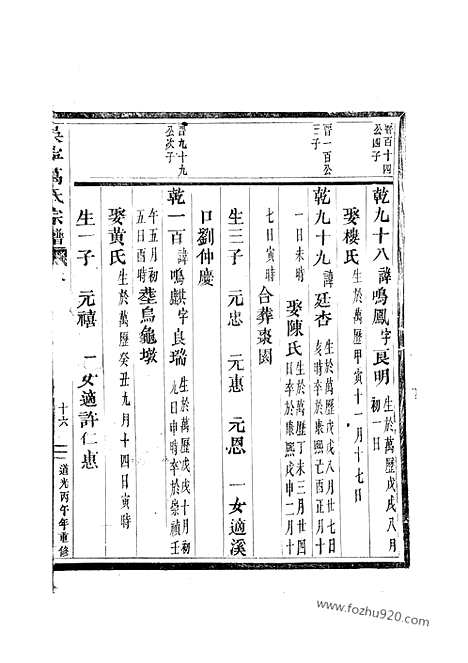 晉百十四公四子
乾九十八諱鳴鳳字良明生於萬歷戊戌八月初一日
娶樓氏生於萬歷甲寅十一月十七日
晉一百公三子
乾九十九諱廷杏生於萬歷戊戌八月廿七日亥時卒於康熙 酉正月十
一日未時娶陳氏生於萬歷丁未三月廿四日卒於康熙戊申二月十
七日寅時合葬棗園
生三子元忠元惠元恩一女適溪
口劉仲慶
晉九十九公次子
乾一百諱鳴麒字良瑞生於萬歷戊戌十月初九日申時卒於崇禎壬
午五月初五日酉時葬烏龜墩
娶黄氏生於萬歷癸丑九月十四日寅時
生一子元禧一女適許仁惠
吳寧葛氏宗譜
十六
道光丙午年重修
www.fozhu920.com